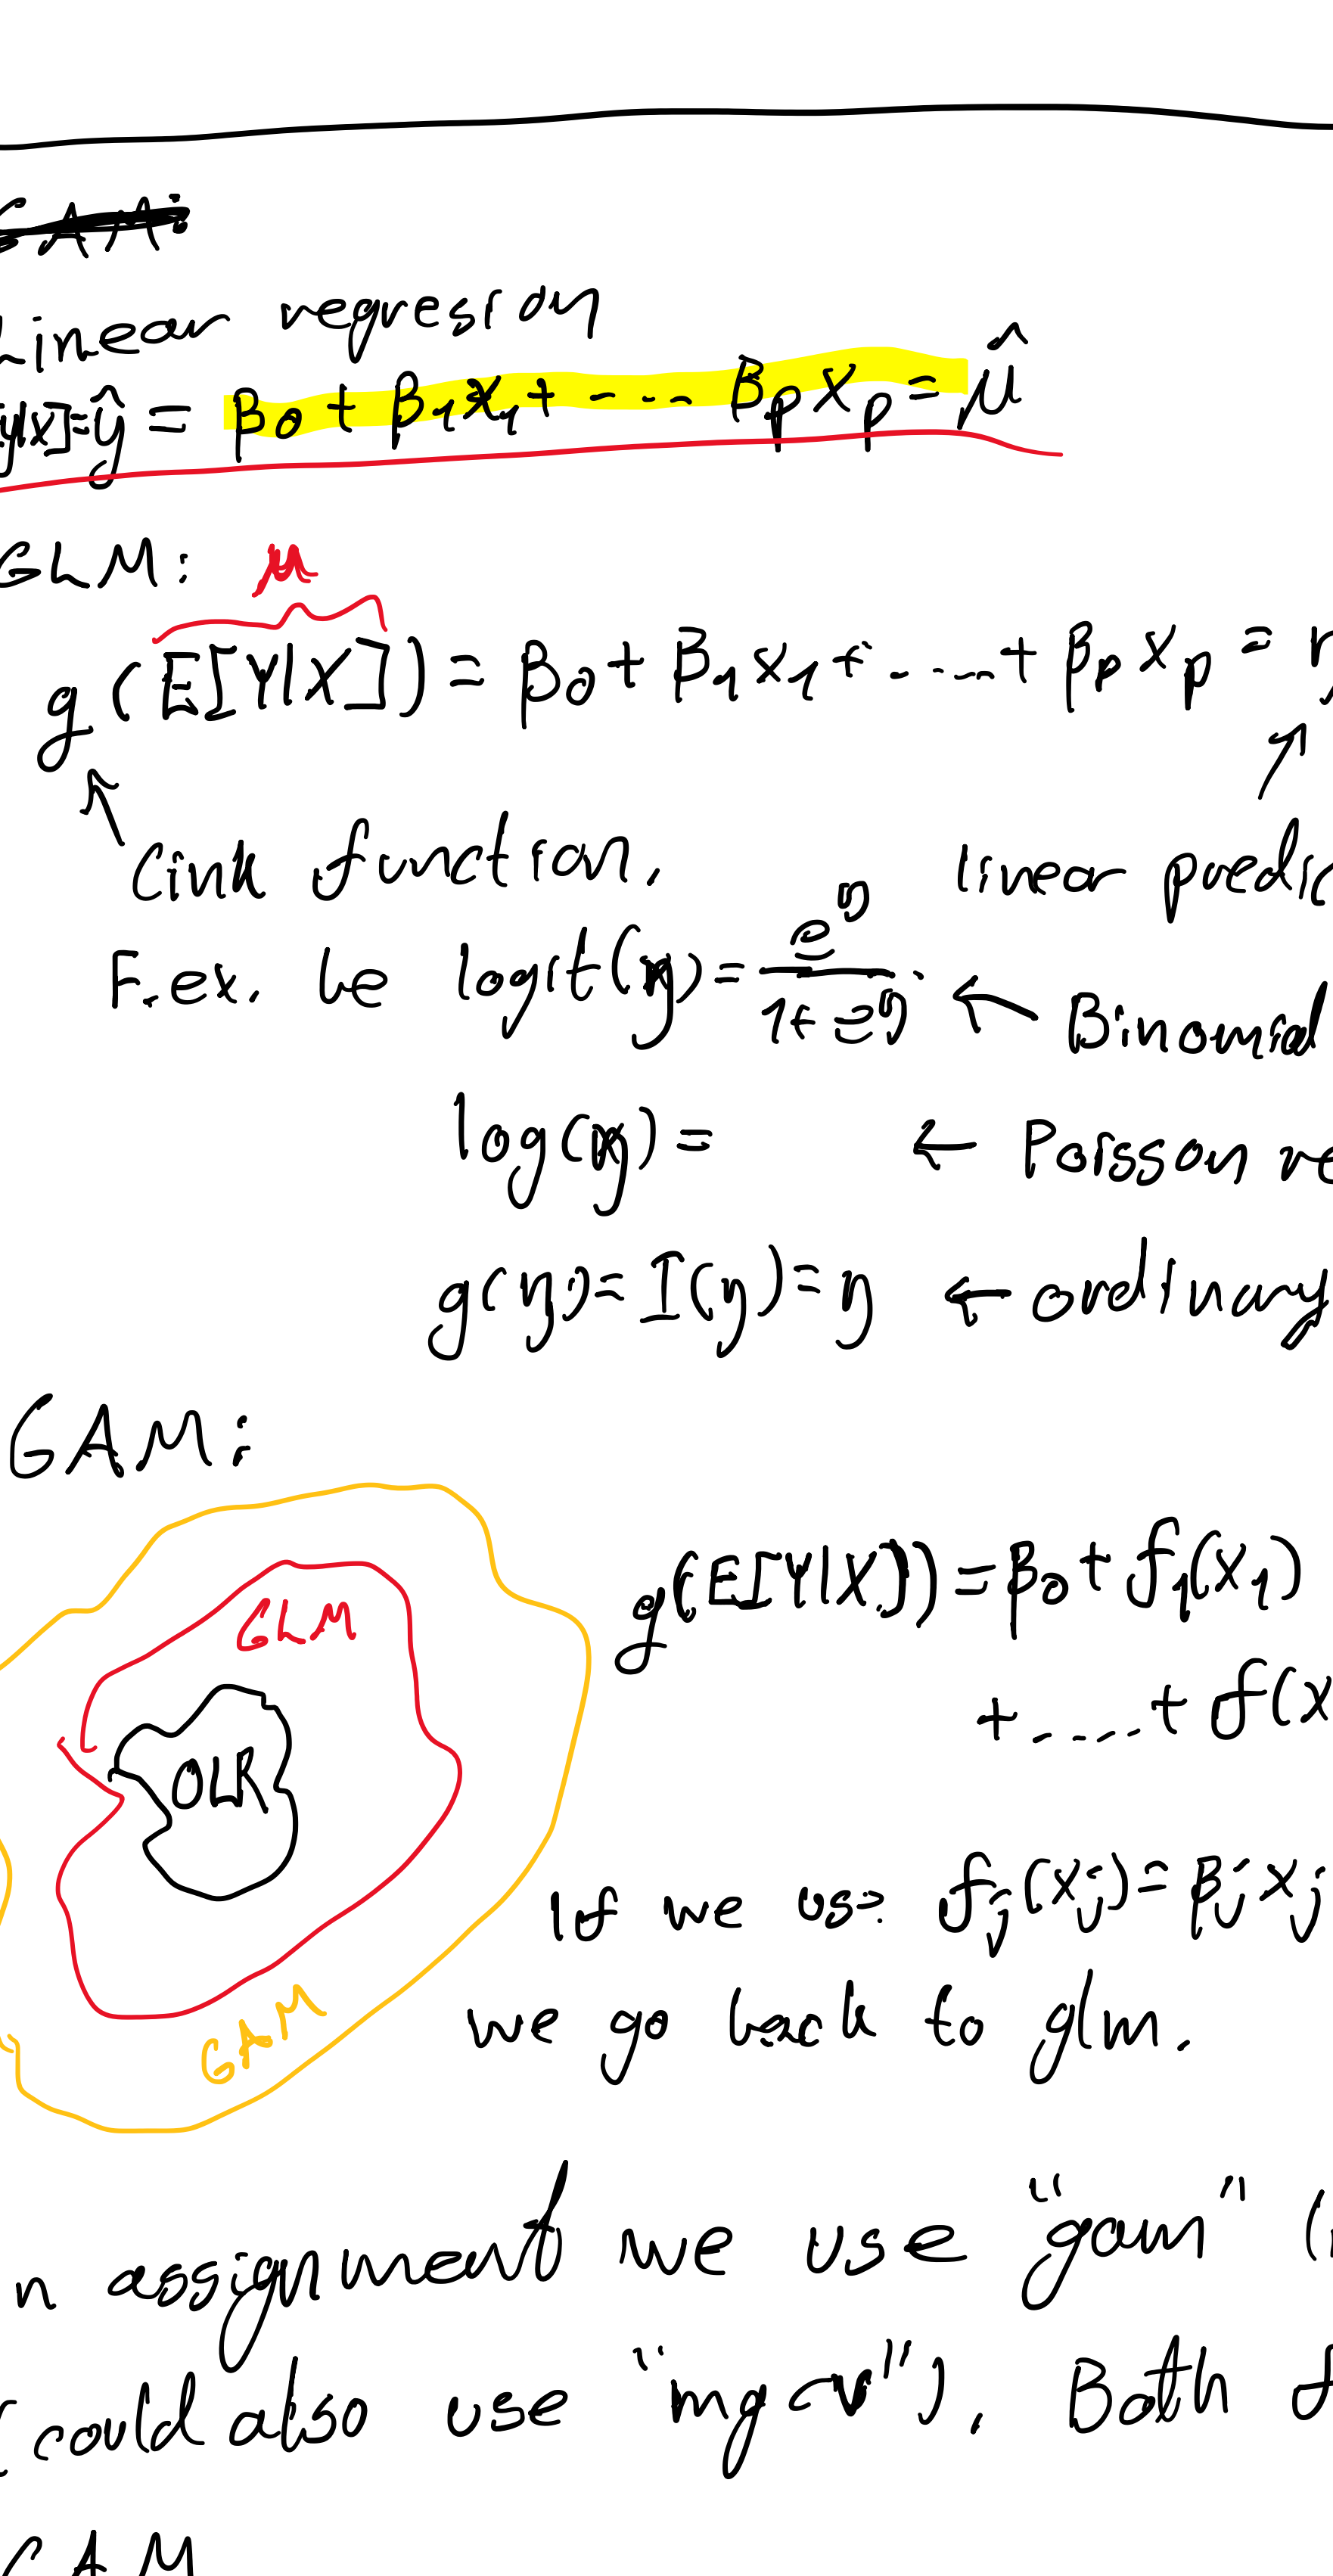 GAM:
Linear regression
y|x]=ŷ = β₀ + β₁x₁ + - .. βₚxₚ = μ̂
GLM: μ
g(E[Y|X]) = β₀ + β₁x₁ + - ... + βₚxₚ = η
Link function, linear predic
F.ex. be logit(η) = e^η / 1+e^η . ← Binomial
log(η) = ← Poisson re
g(η) = I(η) = η ← ordinary
GAM:
g(E[Y|X]) = β₀ + f₁(x₁)
+ .... + f(x
GLM
OLR
GAM
If we use fⱼ(xⱼ) = βⱼxⱼ
we go back to glm.
n assignment we use "gam" (
(could also use "mgcv"). Both f
GAM